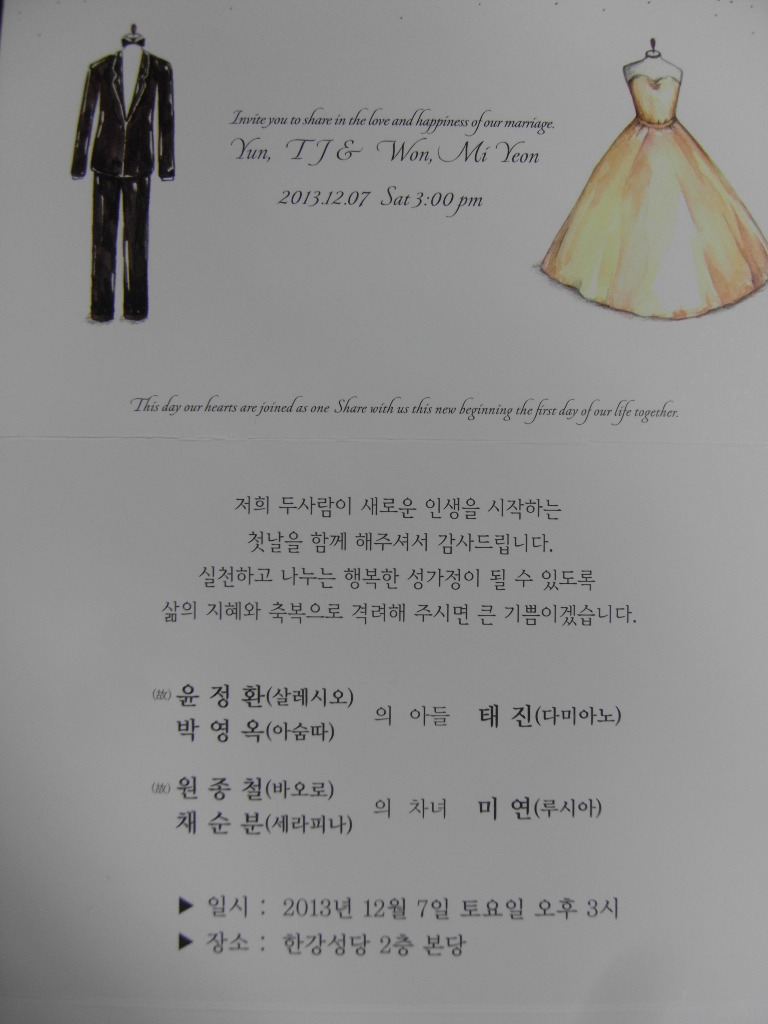 Invite you to share in the love and happiness of our marriage.
Yun, TJ & Won, Mi Yeon
2013.12.07 Sat 3:00 pm
This day our hearts are joined as one Share with us this new beginning the first day of our life together.
저희 두사람이 새로운 인생을 시작하는
첫날을 함께 해주셔서 감사드립니다.
실천하고 나누는 행복한 성가정이 될 수 있도록
삶의 지혜와 축복으로 격려해 주시면 큰 기쁨이겠습니다.
(故) 윤 정 환(살레시오)
박 영 옥(아숨따)
의 아들 태 진(다미아노)
(故) 원 종 철(바오로)
채 순 분(세라피나)
의 차녀 미 연(루시아)
▶ 일시 : 2013년 12월 7일 토요일 오후 3시
▶ 장소 : 한강성당 2층 본당